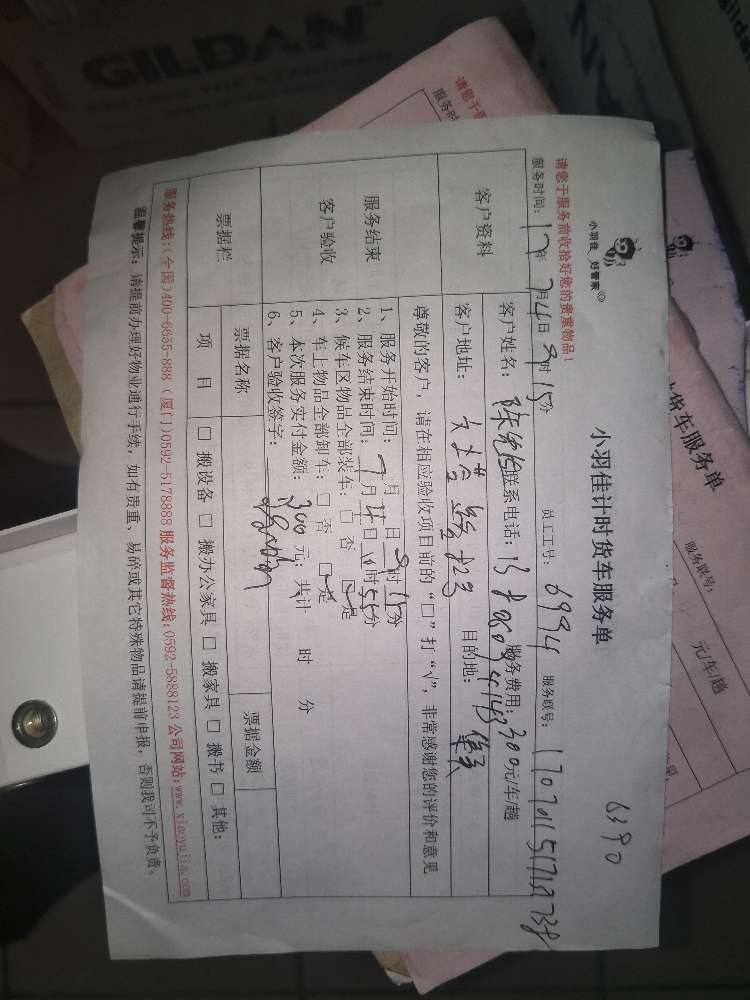 GILDAN
小羽佳 好管家
小羽佳计时货车服务单
6390
请您于服务前收拾好您的贵重物品!
服务时间: 17年 7月4日 9时15分 员工工号: 6994 服务联号:
客户资料
客户姓名: 联系电话: 服务费用: 300元/车/趟
客户地址: 目的地: 集美
尊敬的客户，请在相应验收项目前的“□”打“√”，非常感谢您的评价和意见
服务结束
客户验收
1、服务开始时间: 月 日 9时15分
2、服务结束时间: 7月4日10时55分
3、候车区物品全部装车: □ 否 □ 是
4、车上物品全部卸车: □ 否 □ 是
5、本次服务实付金额: 300元; 共计 时 分
6、客户验收签字:
票据栏
票据名称 票据金额
项 目 □ 搬设备 □ 搬办公家具 □ 搬家具 □ 搬书 □ 其他:
服务热线:(全国)400-6655-888 (厦门)0592-5178888 服务监督热线:0592-5888123 公司网站:www.xiaoyujia.com
温馨提示: 请提前办理好物业通行手续，如有贵重、易碎或其它特殊物品请提前申报，否则我司不予负责。
货车服务单
服务联号:
元/车/趟
请您于
服务时